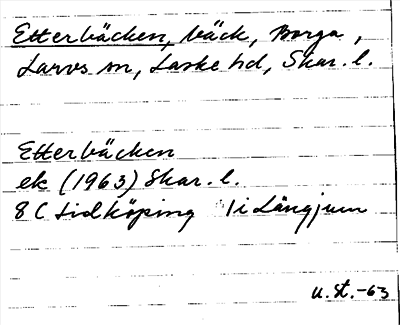 Etterbäcken, bäck, Borga,
Larvs sn, Laske hd, Skar. l.
Etterbäcken
ek (1963) Skar. l.
8 C Lidköping 1i Långjum
U. St.-63